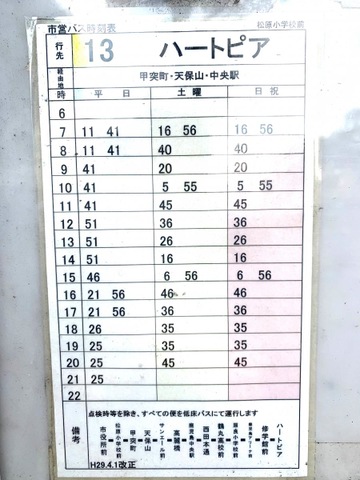 市営バス時刻表 松原小学校前
行先 13 ハートピア
経由地 甲突町・天保山・中央駅
時 平 日 土 曜 日 祝
6
7 11 41 16 56 16 56
8 11 41 40 40
9 41 20 20
10 41 5 55 5 55
11 41 45 45
12 51 36 36
13 51 26 26
14 51 16 16
15 46 6 56 6 56
16 21 56 46 46
17 21 56 36 36
18 26 35 35
19 25 35 35
20 25 45 45
21 25
22
備考 点検時等を除き、すべての便を低床バスにて運行します
市役所前
松原小学校前
甲突町
天保山
サンエール前
高麗橋
鹿児島中央駅
西田本通
鶴丸高校前
修学館前
ハートピア
H29.4.1改正